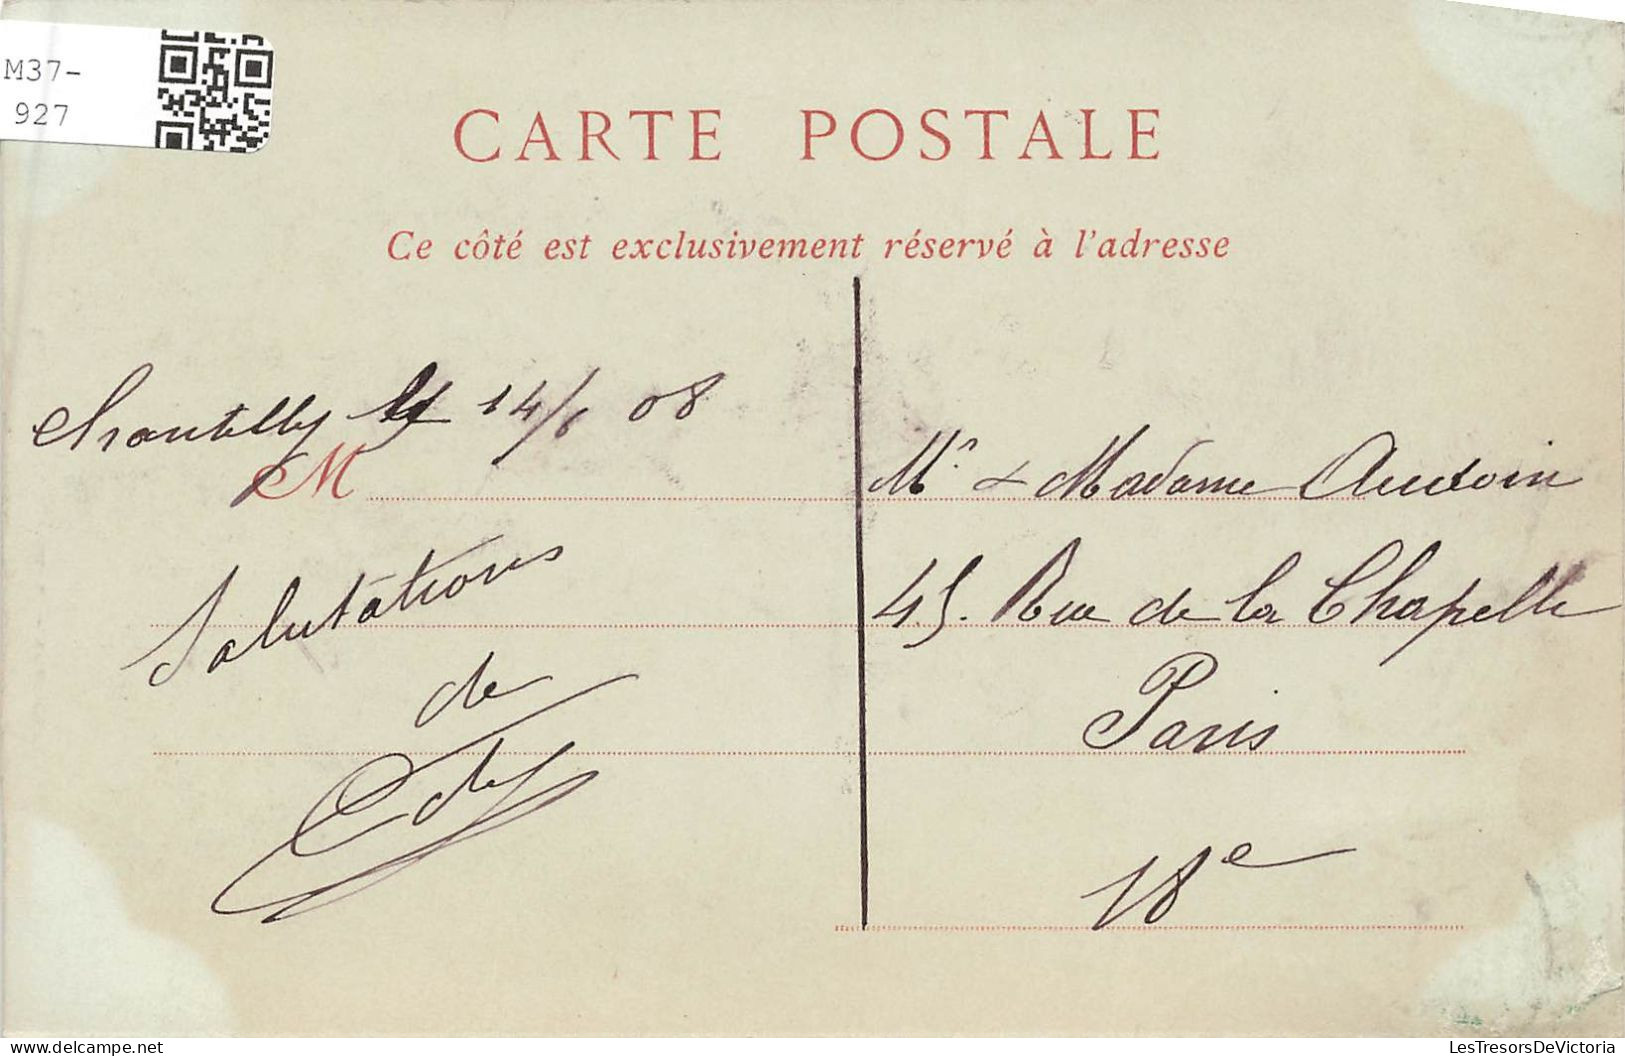 M37-
927
CARTE POSTALE
Ce côté est exclusivement réservé à l'adresse
Chantilly le 14/6 08
M
Salutations
de
Mr & Madame Audoin
45. Rue de la Chapelle
Paris
18e
delcampe.net
LesTresorsDeVictoria